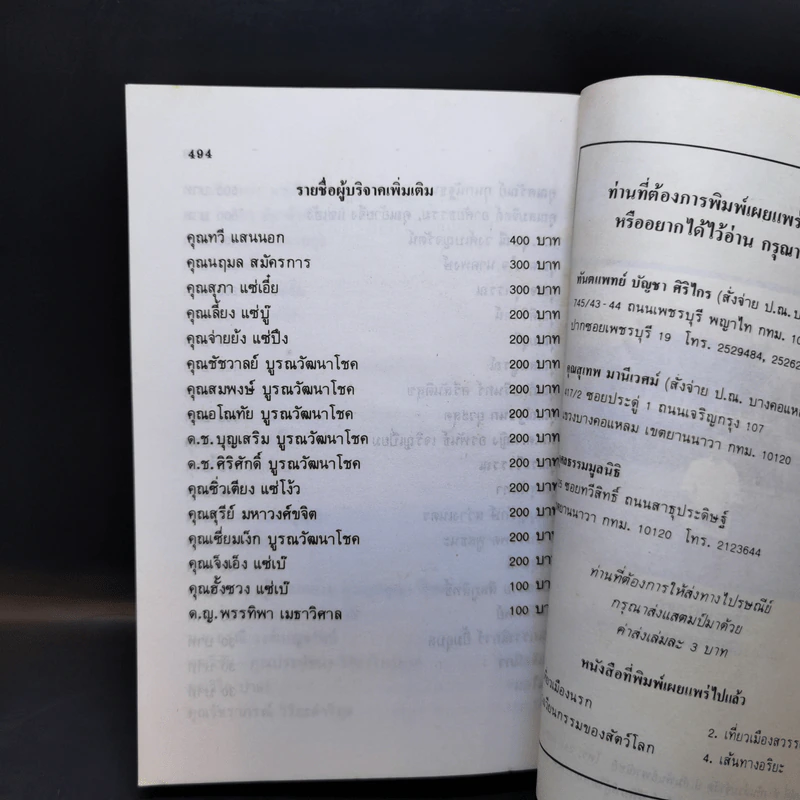 494
รายชื่อผู้บริจาคเพิ่มเติม
คุณทวี แสนนอก 400 บาท
คุณนฤมล สมัครการ 300 บาท
คุณสุภา แซ่เอี๋ย 300 บาท
คุณเลี้ยง แซ่บู๊ 200 บาท
คุณจ่ายยัง แซ่ปึง 200 บาท
คุณชัชวาลย์ บูรณวัฒนาโชค 200 บาท
คุณสมพงษ์ บูรณวัฒนาโชค 200 บาท
คุณอโณทัย บูรณวัฒนาโชค 200 บาท
ด.ช.บุญเสริม บูรณวัฒนาโชค 200 บาท
ด.ช.ศิริศักดิ์ บูรณวัฒนาโชค 200 บาท
คุณซิ่วเตียง แซ่โง้ว 200 บาท
คุณสุรีย์ มหาวงศ์ขจิต 200 บาท
คุณเซี่ยมเง็ก บูรณวัฒนาโชค 200 บาท
คุณเจ็งเอ็ง แซ่เบ๊ 200 บาท
คุณฮั้งซวง แซ่เบ๊ 100 บาท
ด.ญ.พรรทิพา เมธาวิศาล 100 บาท
ท่านที่ต้องการพิมพ์เผยแพร่
หรืออยากได้ไว้อ่าน กรุณา
ทันตแพทย์ บัญชา ศิริไกร (สั่งจ่าย ป.ณ.
745/43-44 ถนนเพชรบุรี พญาไท กทม. 10
ปากซอยเพชรบุรี 19 โทร. 2529484, 25262
คุณสุเทพ มานีเวศม์ (สั่งจ่าย ป.ณ. บางคอแหลม
417/2 ซอยประดู่ 1 ถนนเจริญกรุง 107
แขวงบางคอแหลม เขตยานนาวา กทม. 10120
ธรรมมูลนิธิ
ซอยทวีสิทธิ์ ถนนสาธุประดิษฐ์
ยานนาวา กทม. 10120 โทร. 2123644
ท่านที่ต้องการให้ส่งทางไปรษณีย์
กรุณาส่งแสตมป์มาด้วย
ค่าส่งเล่มละ 3 บาท
หนังสือที่พิมพ์เผยแพร่ไปแล้ว
เที่ยวเมืองนรก 2. เที่ยวเมืองสวรร
เวียนกรรมของสัตว์โลก 4. เส้นทางอริยะ